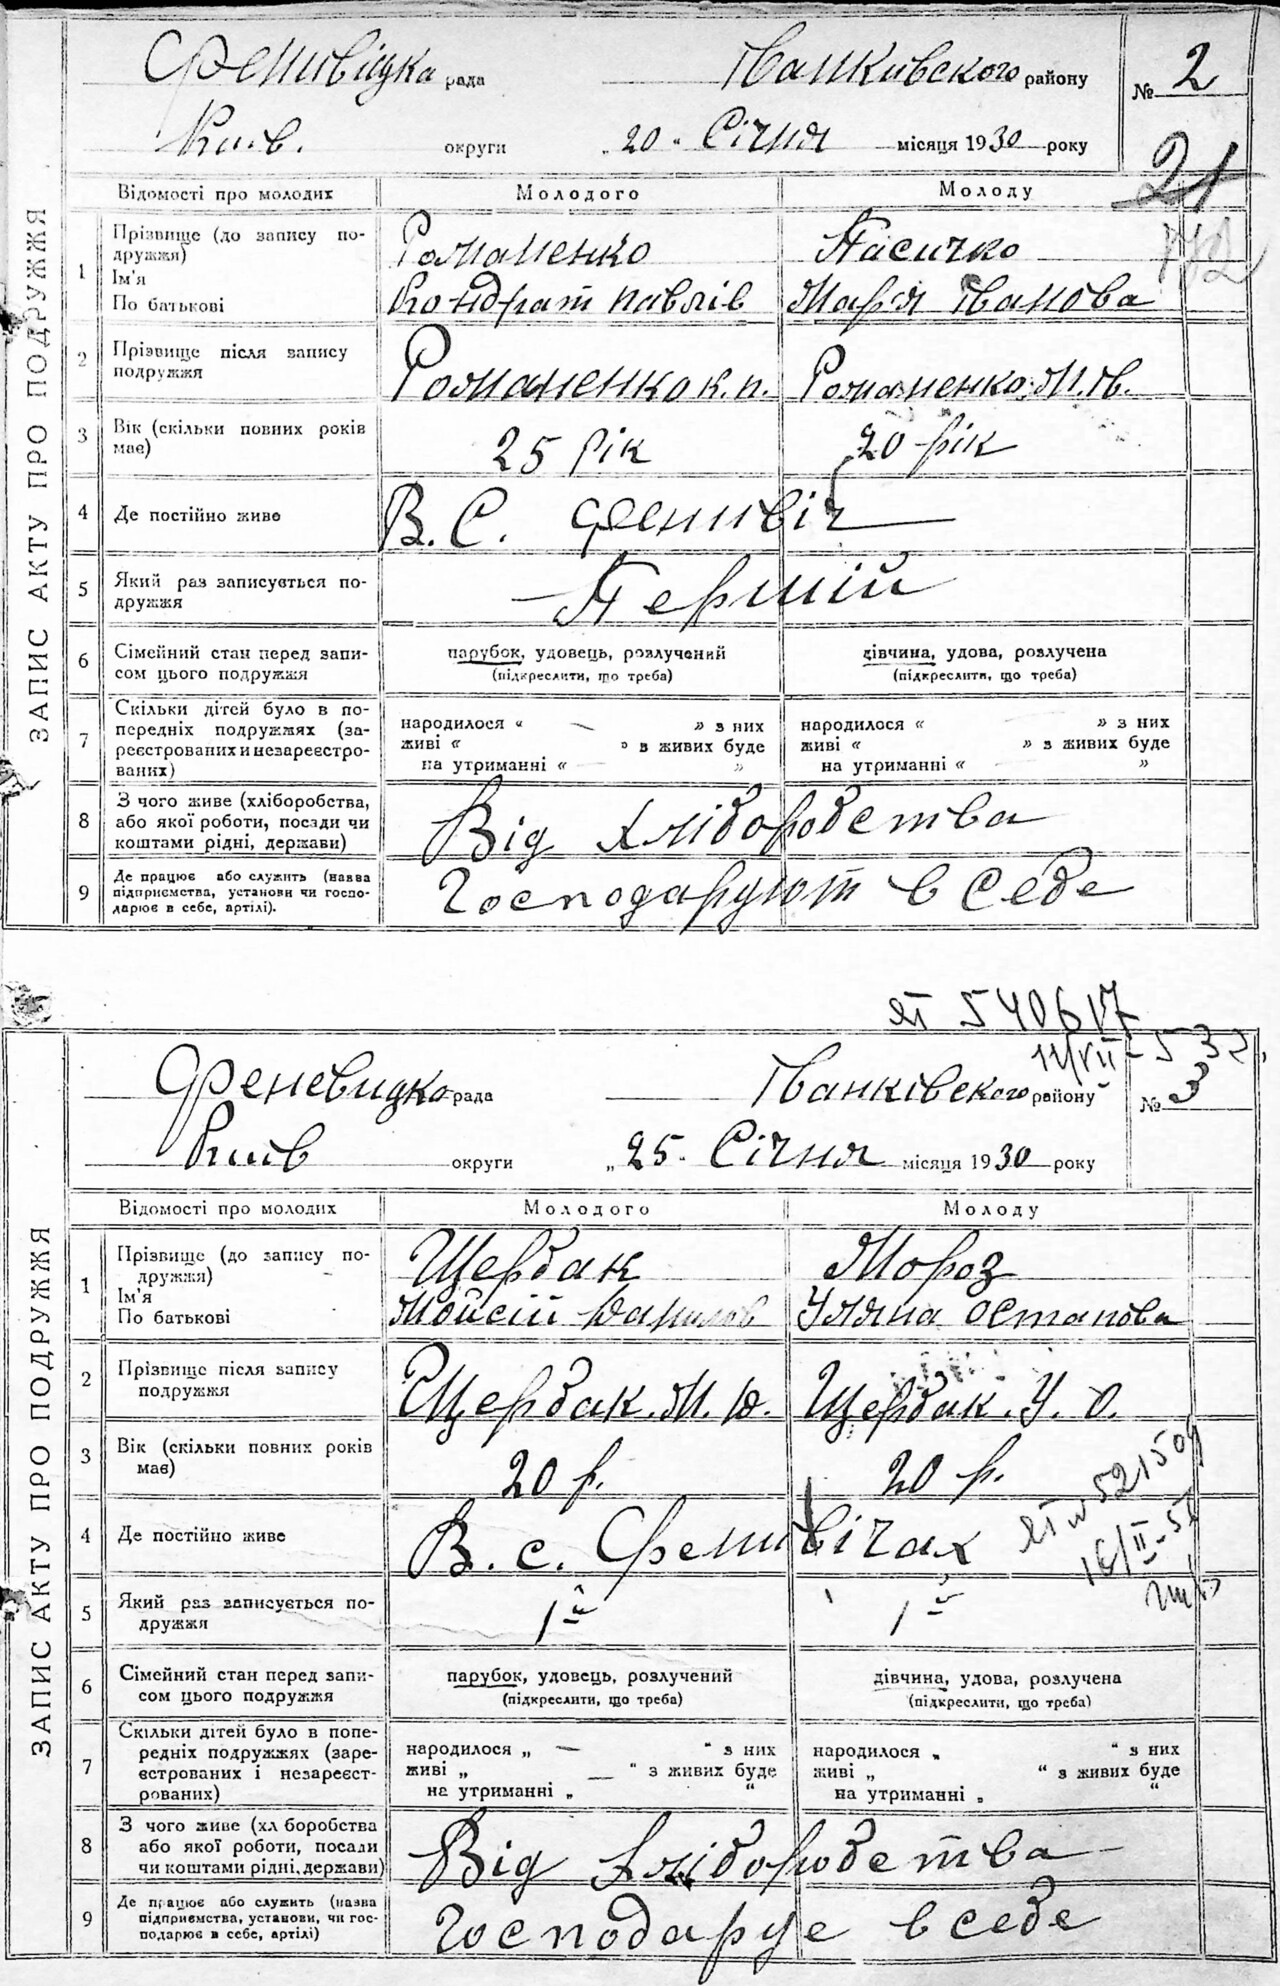 Фенивіцка рада Іванкивского району № 2
Київ. округи „20" Січня місяця 1930 року
21
ЗАПИС АКТУ ПРО ПОДРУЖЖЯ
Відомості про молодих Молодого Молоду
1 Прізвище (до запису по- Романенко Пасичко
дружжя)
Ім'я
По батькові Кондрат Павлів Мар'я Іванова
2 Прізвище після запису
подружжя Романенко к. п. Романенко. М. Ів.
3 Вік (скільки повних років
має) 25 рік 20 рік
4 Де постійно живе В. С. Фенивіч
5 Який раз записується по-
дружжя Першій
6 Сімейний стан перед запи- парубок, удовець, розлучений дівчина, удова, розлучена
сом цього подружжя (підкреслити, що треба) (підкреслити, що треба)
7 Скільки дітей було в по-
передніх подружжях (за- народилося „ — " з них народилося „ " з них
реєстрованих и незареєстро- живі „ " з живих буде живі „ " з живих буде
ваних) на утриманні „ " на утриманні „ "
8 З чого живе (хліборобства,
або якої роботи, посади чи
коштами рідні, держави) Від хліборобства
9 Де працює або служить (назва
підприємства, установи чи госпо-
дарює в себе, артілі). Господарюют в себе
540617
11/VII – 53 г.
Феневицка рада Іванківского району № 3
Київ округи „25" Січня місяця 1930 року
ЗАПИС АКТУ ПРО ПОДРУЖЖЯ
Відомості про молодих Молодого Молоду
1 Прізвище (до запису по- Щербак Мороз
дружжя)
Ім'я
По батькові Мойсій Данилов Уляна Остапова
2 Прізвище після запису
подружжя Щербак. М. Д. Щербак. У. О.
3 Вік (скільки повних років
має) 20 р. 20 р.
521509
4 Де постійно живе В. с. Фенивічах
16/II – 51
5 Який раз записується по-
дружжя 1й 1й
6 Сімейний стан перед запи- парубок, удовець, розлучений дівчина, удова, розлучена
сом цього подружжя (підкреслити, що треба) (підкреслити, що треба)
7 Скільки дітей було в попе-
редніх подружжях (заре- народилося „ — " з них народилося „ " з них
єстрованих і незареєст- живі „ — " з живих буде живі „ " з живих буде
рованих) на утриманні „ " на утриманні „ "
8 З чого живе (хл боробства
або якої роботи, посади
чи коштами рідні, держави) Від хліборобства
9 Де працює або служить (назва
підприємства, установи, чи гос-
подарює в себе, артілі) Господарує в себе